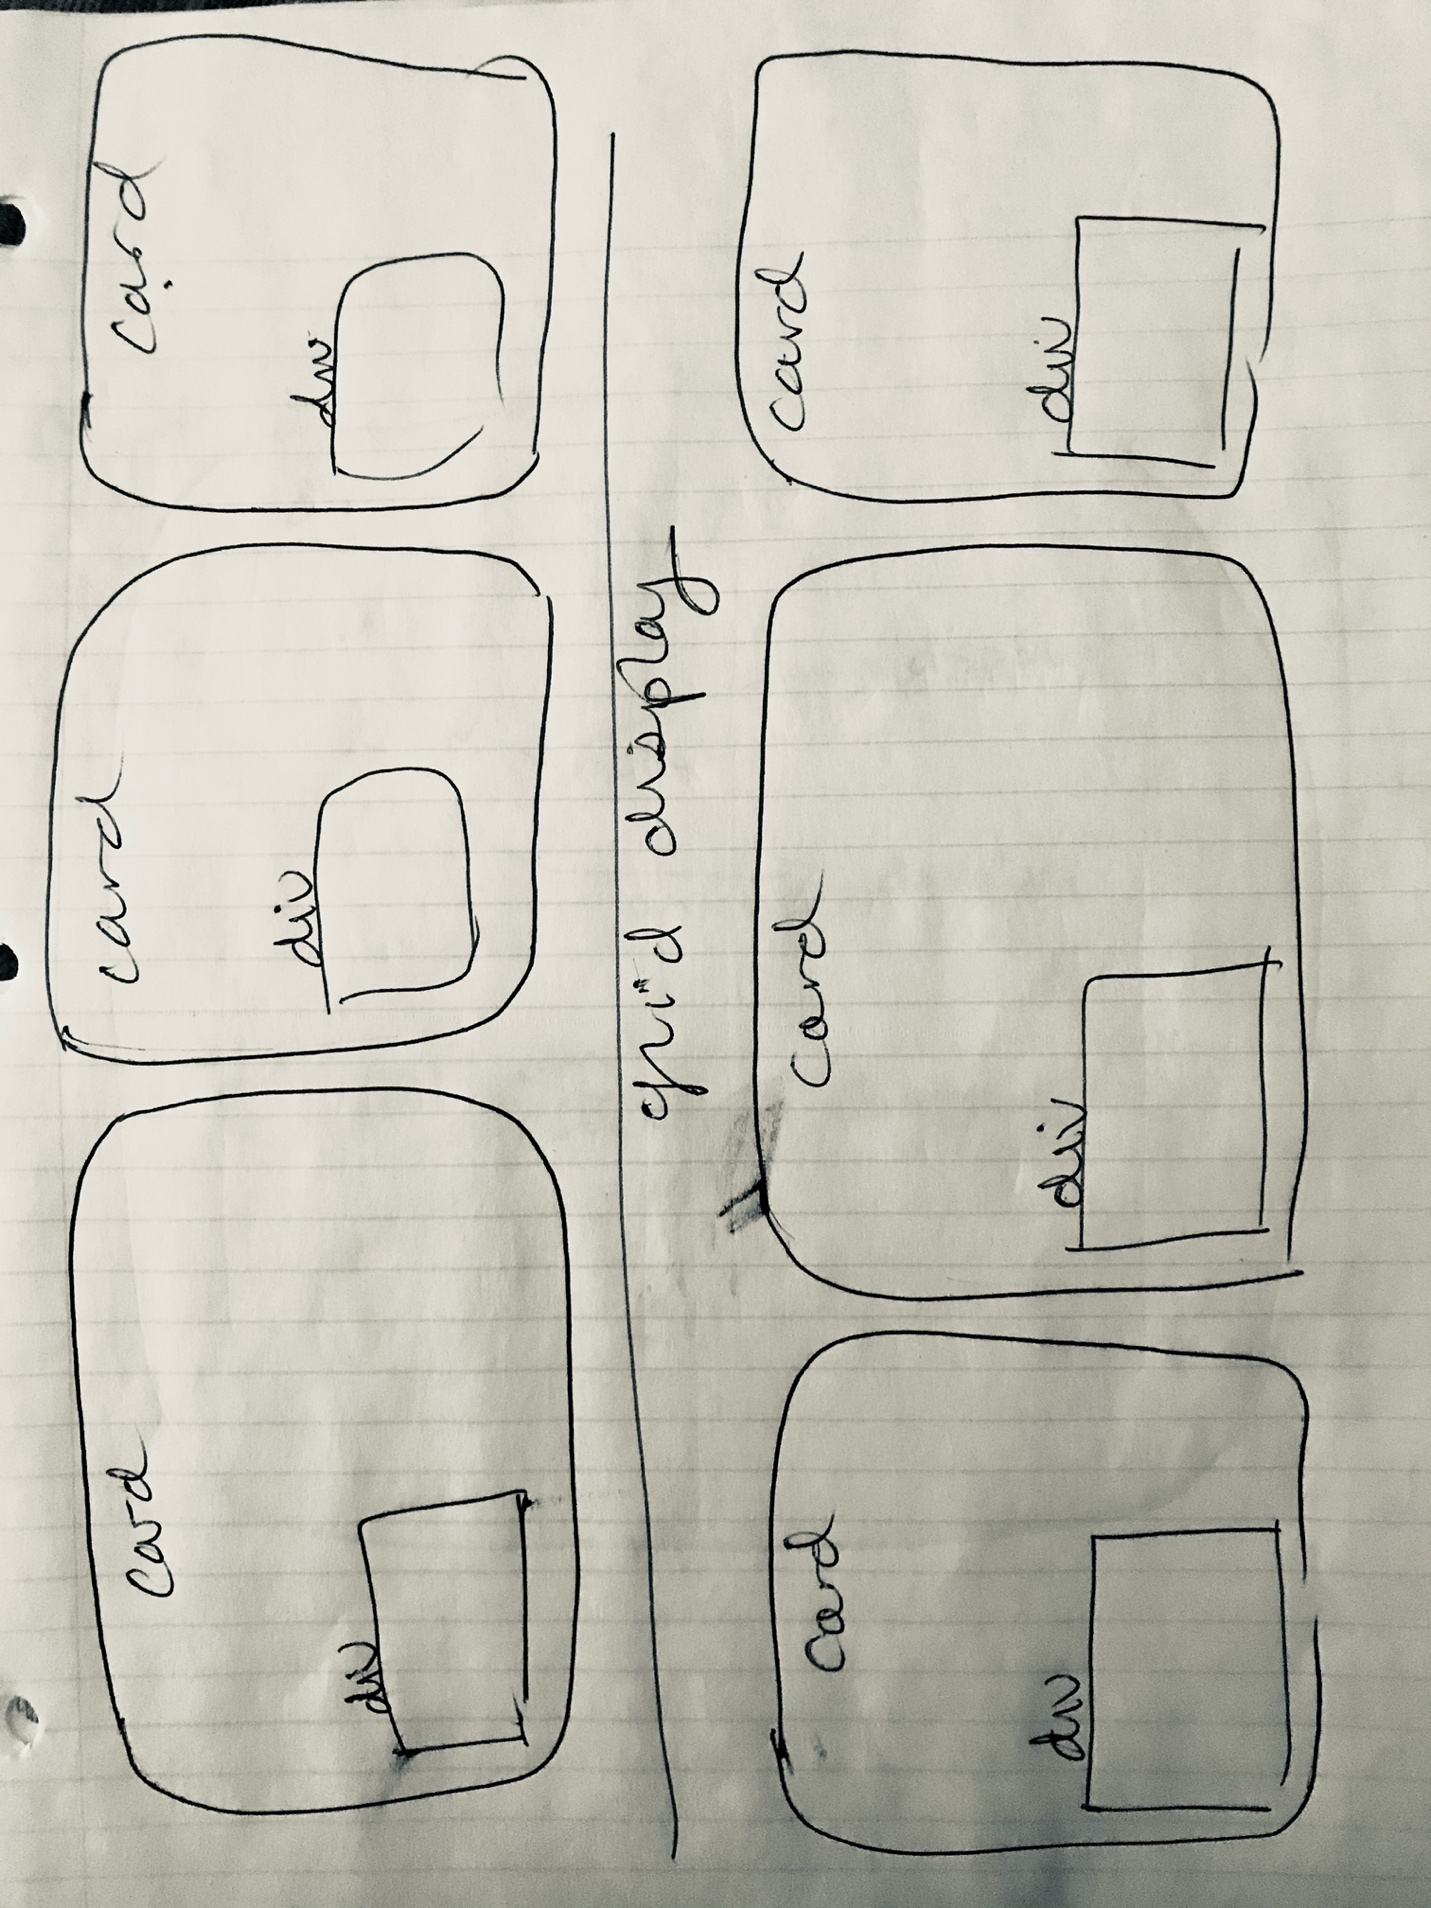 Card
div
card
div
Card
div
grid display
Card
div
Card
div
card
div